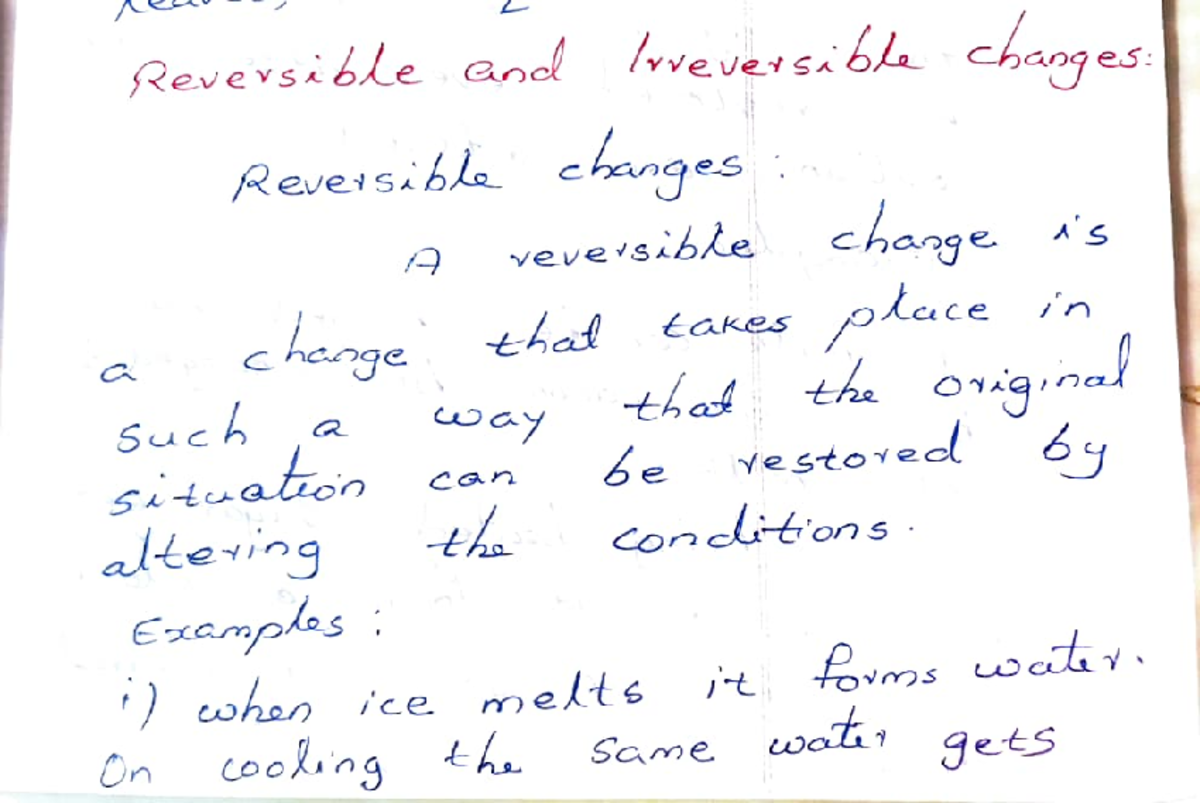 Reversible and Irreversible changes:
Reversible changes :
A reversible change is
a change that takes place in
such a way that the original
situation can be restored by
altering the conditions.
Examples :
i) when ice melts it forms water.
On cooling the same water gets